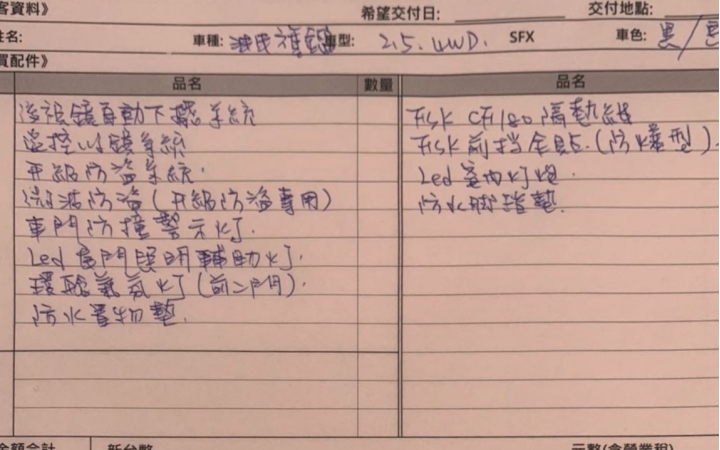 客資料》
希望交付日:
交付地點:
姓名:
車種:
車型: 2.5. 4WD.
SFX
車色: 黑/黑
買配件》
品名
數量
品名
後視鏡自動下擺系統
遙控 系統
升級防盜系統.
微波防盜(升級防盜專用)
車門防撞警示灯.
Led 尾門照明輔助灯.
環艙氣氛灯(前二門).
防水置物墊.
FSK CF180 隔熱紙
FSK 前挡全貼.(防爆型).
Led 室內灯炮.
防水腳踏墊.
金額合計
新台幣
元整(含營業稅)